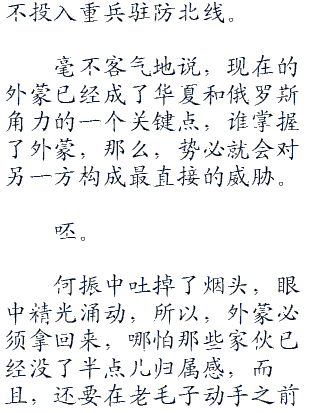 不投入重兵驻防北线。
毫不客气地说，现在的
外蒙已经成了华夏和俄罗斯
角力的一个关键点，谁掌握
了外蒙，那么，势必就会对
另一方构成最直接的威胁。
呸。
何振中吐掉了烟头，眼
中精光涌动，所以，外蒙必
须拿回来，哪怕那些家伙已
经没了半点儿归属感，而
且，还要在老毛子动手之前